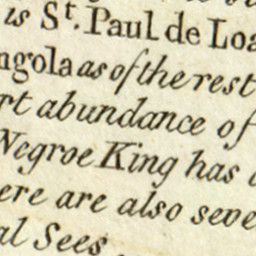 is St. Paul de Loa
ngola as of the rest
rt abundance of
Negroe King has
ere are also seve
al Sees